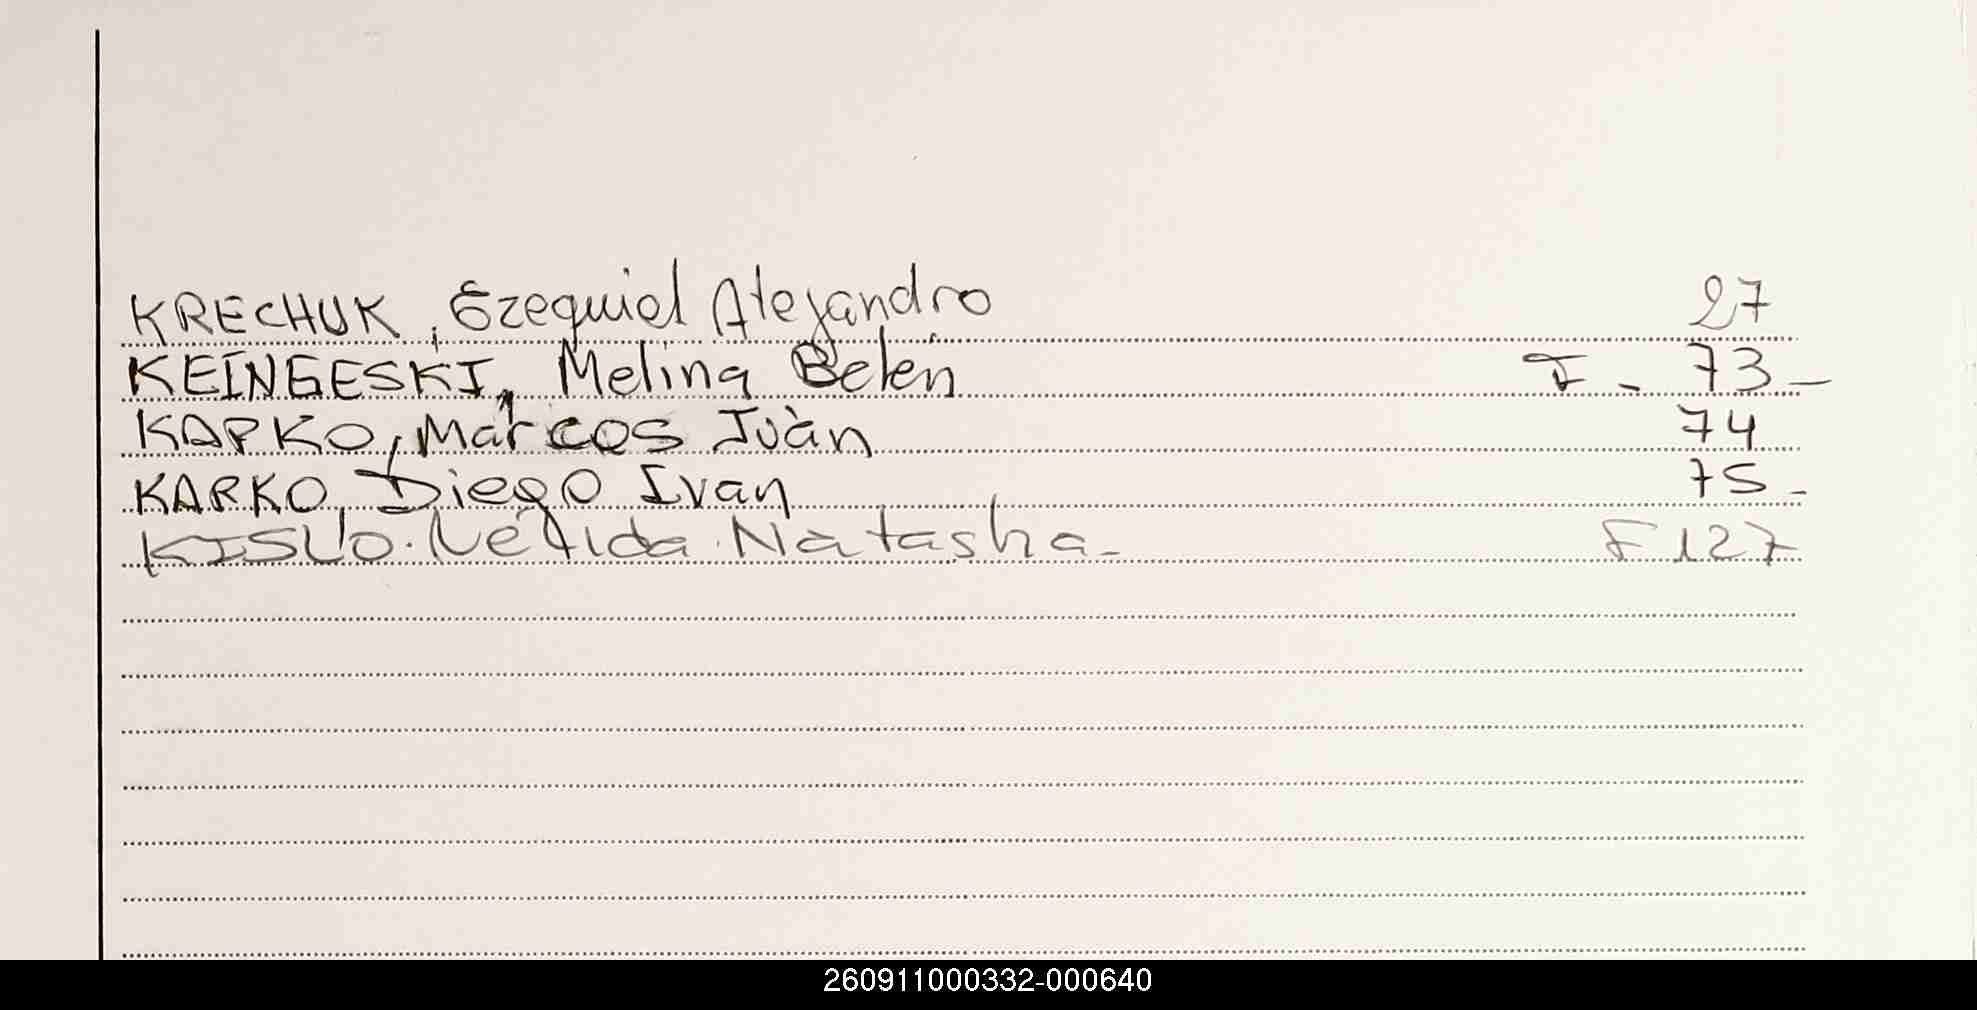 KRECHUK, Ezequiel Alejandro 27
KEINGESKI, Melina Belén F - 73 -
KARKO, Marcos Iván 74
KARKO, Diego Ivan 75 -
KISLO. Nélida. Natasha - F 127
260911000332-000640